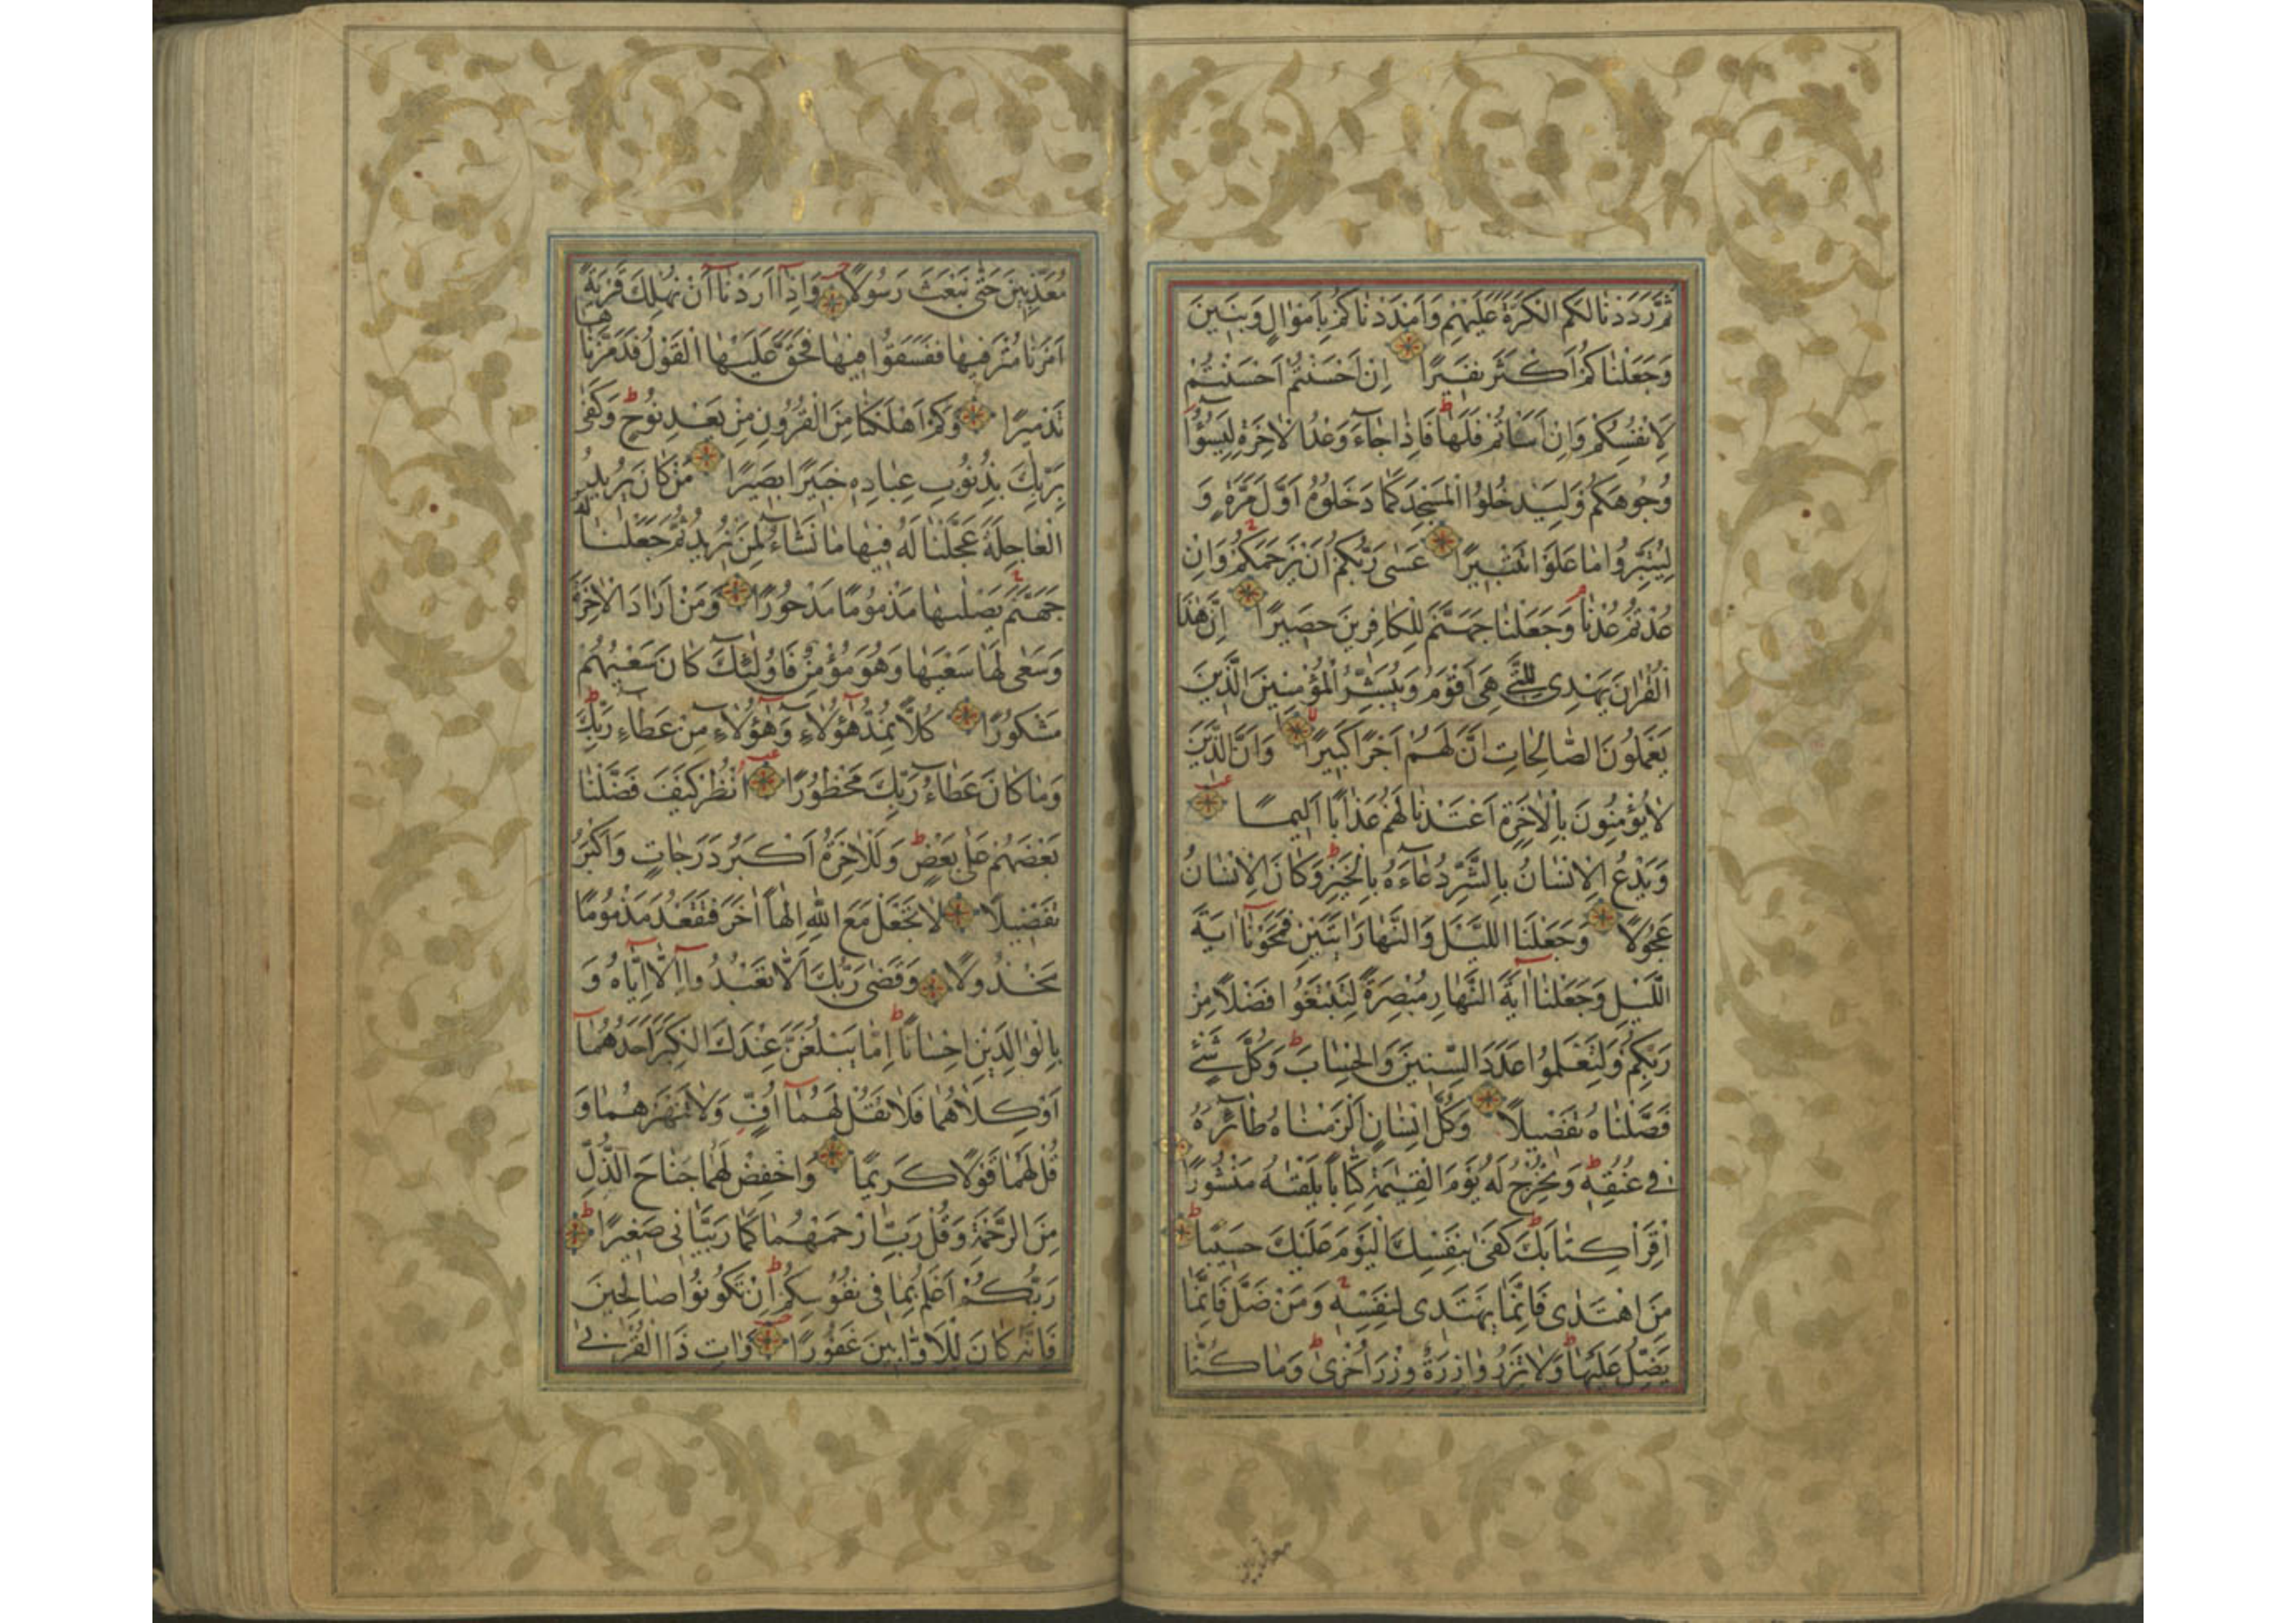 ثُمَّ رَدَدْنٰا لَكُمُ الْكَرَّةَ عَلَيْهِمْ وَاَمْدَدْنٰاكُمْ بِاَمْوٰالٍ وَبَنِينَ
وَجَعَلْنٰاكُمْ اَكْثَرَ نَفِيرًا اِنْ اَحْسَنْتُمْ اَحْسَنْتُمْ
لِاَنْفُسِكُمْ وَاِنْ اَسَاْتُمْ فَلَهٰا فَاِذٰا جٰٓاءَ وَعْدُ الْاٰخِرَةِ لِيَسُوؤُا
وُجُوهَكُمْ وَلِيَدْخُلُوا الْمَسْجِدَ كَمٰا دَخَلُوهُ اَوَّلَ مَرَّةٍ وَ
لِيُتَبِّرُوا مٰا عَلَوْا تَتْبِيرًا عَسٰى رَبُّكُمْ اَنْ يَرْحَمَكُمْ وَاِنْ
عُدْتُمْ عُدْنٰا وَجَعَلْنٰا جَهَنَّمَ لِلْكٰافِرِينَ حَصِيرًا اِنَّ هٰذَا
الْقُرْاٰنَ يَهْدِى لِلَّتِى هِىَ اَقْوَمُ وَيُبَشِّرُ الْمُؤْمِنِينَ الَّذِينَ
يَعْمَلُونَ الصّٰالِحٰاتِ اَنَّ لَهُمْ اَجْرًا كَبِيرًا وَاَنَّ الَّذِينَ
لٰا يُؤْمِنُونَ بِالْاٰخِرَةِ اَعْتَدْنٰا لَهُمْ عَذٰابًا اَلِيمًا
وَيَدْعُ الْاِنْسٰانُ بِالشَّرِّ دُعٰٓاءَهُ بِالْخَيْرِ وَكٰانَ الْاِنْسٰانُ
عَجُولًا وَجَعَلْنَا اللَّيْلَ وَالنَّهٰارَ اٰيَتَيْنِ فَمَحَوْنٰٓا اٰيَةَ
اللَّيْلِ وَجَعَلْنٰٓا اٰيَةَ النَّهٰارِ مُبْصِرَةً لِتَبْتَغُوا فَضْلًا مِنْ
رَبِّكُمْ وَلِتَعْلَمُوا عَدَدَ السِّنِينَ وَالْحِسٰابَ وَكُلَّ شَىْءٍ
فَصَّلْنٰاهُ تَفْصِيلًا وَكُلَّ اِنْسٰانٍ اَلْزَمْنٰاهُ طٰٓائِرَهُ
فِى عُنُقِهِ وَنُخْرِجُ لَهُ يَوْمَ الْقِيٰمَةِ كِتٰابًا يَلْقٰىهُ مَنْشُورًا
اِقْرَاْ كِتٰابَكَ كَفٰى بِنَفْسِكَ الْيَوْمَ عَلَيْكَ حَسِيبًا
مَنِ اهْتَدٰى فَاِنَّمٰا يَهْتَدِى لِنَفْسِهِ وَمَنْ ضَلَّ فَاِنَّمٰا
يَضِلُّ عَلَيْهٰا وَلٰا تَزِرُ وٰازِرَةٌ وِزْرَ اُخْرٰى وَمٰا كُنّٰا
مُعَذِّبِينَ حَتّٰى نَبْعَثَ رَسُولًا وَاِذٰٓا اَرَدْنٰٓا اَنْ نُهْلِكَ قَرْيَةً
اَمَرْنٰا مُتْرَفِيهٰا فَفَسَقُوا فِيهٰا فَحَقَّ عَلَيْهَا الْقَوْلُ فَدَمَّرْنٰاهٰا
تَدْمِيرًا وَكَمْ اَهْلَكْنٰا مِنَ الْقُرُونِ مِنْ بَعْدِ نُوحٍ وَكَفٰى
بِرَبِّكَ بِذُنُوبِ عِبٰادِهِ خَبِيرًا بَصِيرًا مَنْ كٰانَ يُرِيدُ
الْعٰاجِلَةَ عَجَّلْنٰا لَهُ فِيهٰا مٰا نَشٰٓاءُ لِمَنْ نُرِيدُ ثُمَّ جَعَلْنٰا لَهُ
جَهَنَّمَ يَصْلٰيهٰا مَذْمُومًا مَدْحُورًا وَمَنْ اَرٰادَ الْاٰخِرَةَ
وَسَعٰى لَهٰا سَعْيَهٰا وَهُوَ مُؤْمِنٌ فَاُولٰٓئِكَ كٰانَ سَعْيُهُمْ
مَشْكُورًا كُلًّا نُمِدُّ هٰٓؤُلٰٓاءِ وَهٰٓؤُلٰٓاءِ مِنْ عَطٰٓاءِ رَبِّكَ
وَمٰا كٰانَ عَطٰٓاءُ رَبِّكَ مَحْظُورًا اُنْظُرْ كَيْفَ فَضَّلْنٰا
بَعْضَهُمْ عَلٰى بَعْضٍ وَلَلْاٰخِرَةُ اَكْبَرُ دَرَجٰاتٍ وَاَكْبَرُ
تَفْضِيلًا لٰا تَجْعَلْ مَعَ اللّٰهِ اِلٰهًا اٰخَرَ فَتَقْعُدَ مَذْمُومًا
مَخْذُولًا وَقَضٰى رَبُّكَ اَلّٰا تَعْبُدُوٓا اِلّٰٓا اِيّٰاهُ وَ
بِالْوٰالِدَيْنِ اِحْسٰانًا اِمّٰا يَبْلُغَنَّ عِنْدَكَ الْكِبَرَ اَحَدُهُمٰٓا
اَوْ كِلٰاهُمٰا فَلٰا تَقُلْ لَهُمٰٓا اُفٍّ وَلٰا تَنْهَرْهُمٰا وَ
قُلْ لَهُمٰا قَوْلًا كَرِيمًا وَاخْفِضْ لَهُمٰا جَنٰاحَ الذُّلِّ
مِنَ الرَّحْمَةِ وَقُلْ رَبِّ ارْحَمْهُمٰا كَمٰا رَبَّيٰانِى صَغِيرًا
رَبُّكُمْ اَعْلَمُ بِمٰا فِى نُفُوسِكُمْ اِنْ تَكُونُوا صٰالِحِينَ
فَاِنَّهُ كٰانَ لِلْاَوّٰابِينَ غَفُورًا وَاٰتِ ذَا الْقُرْبٰى